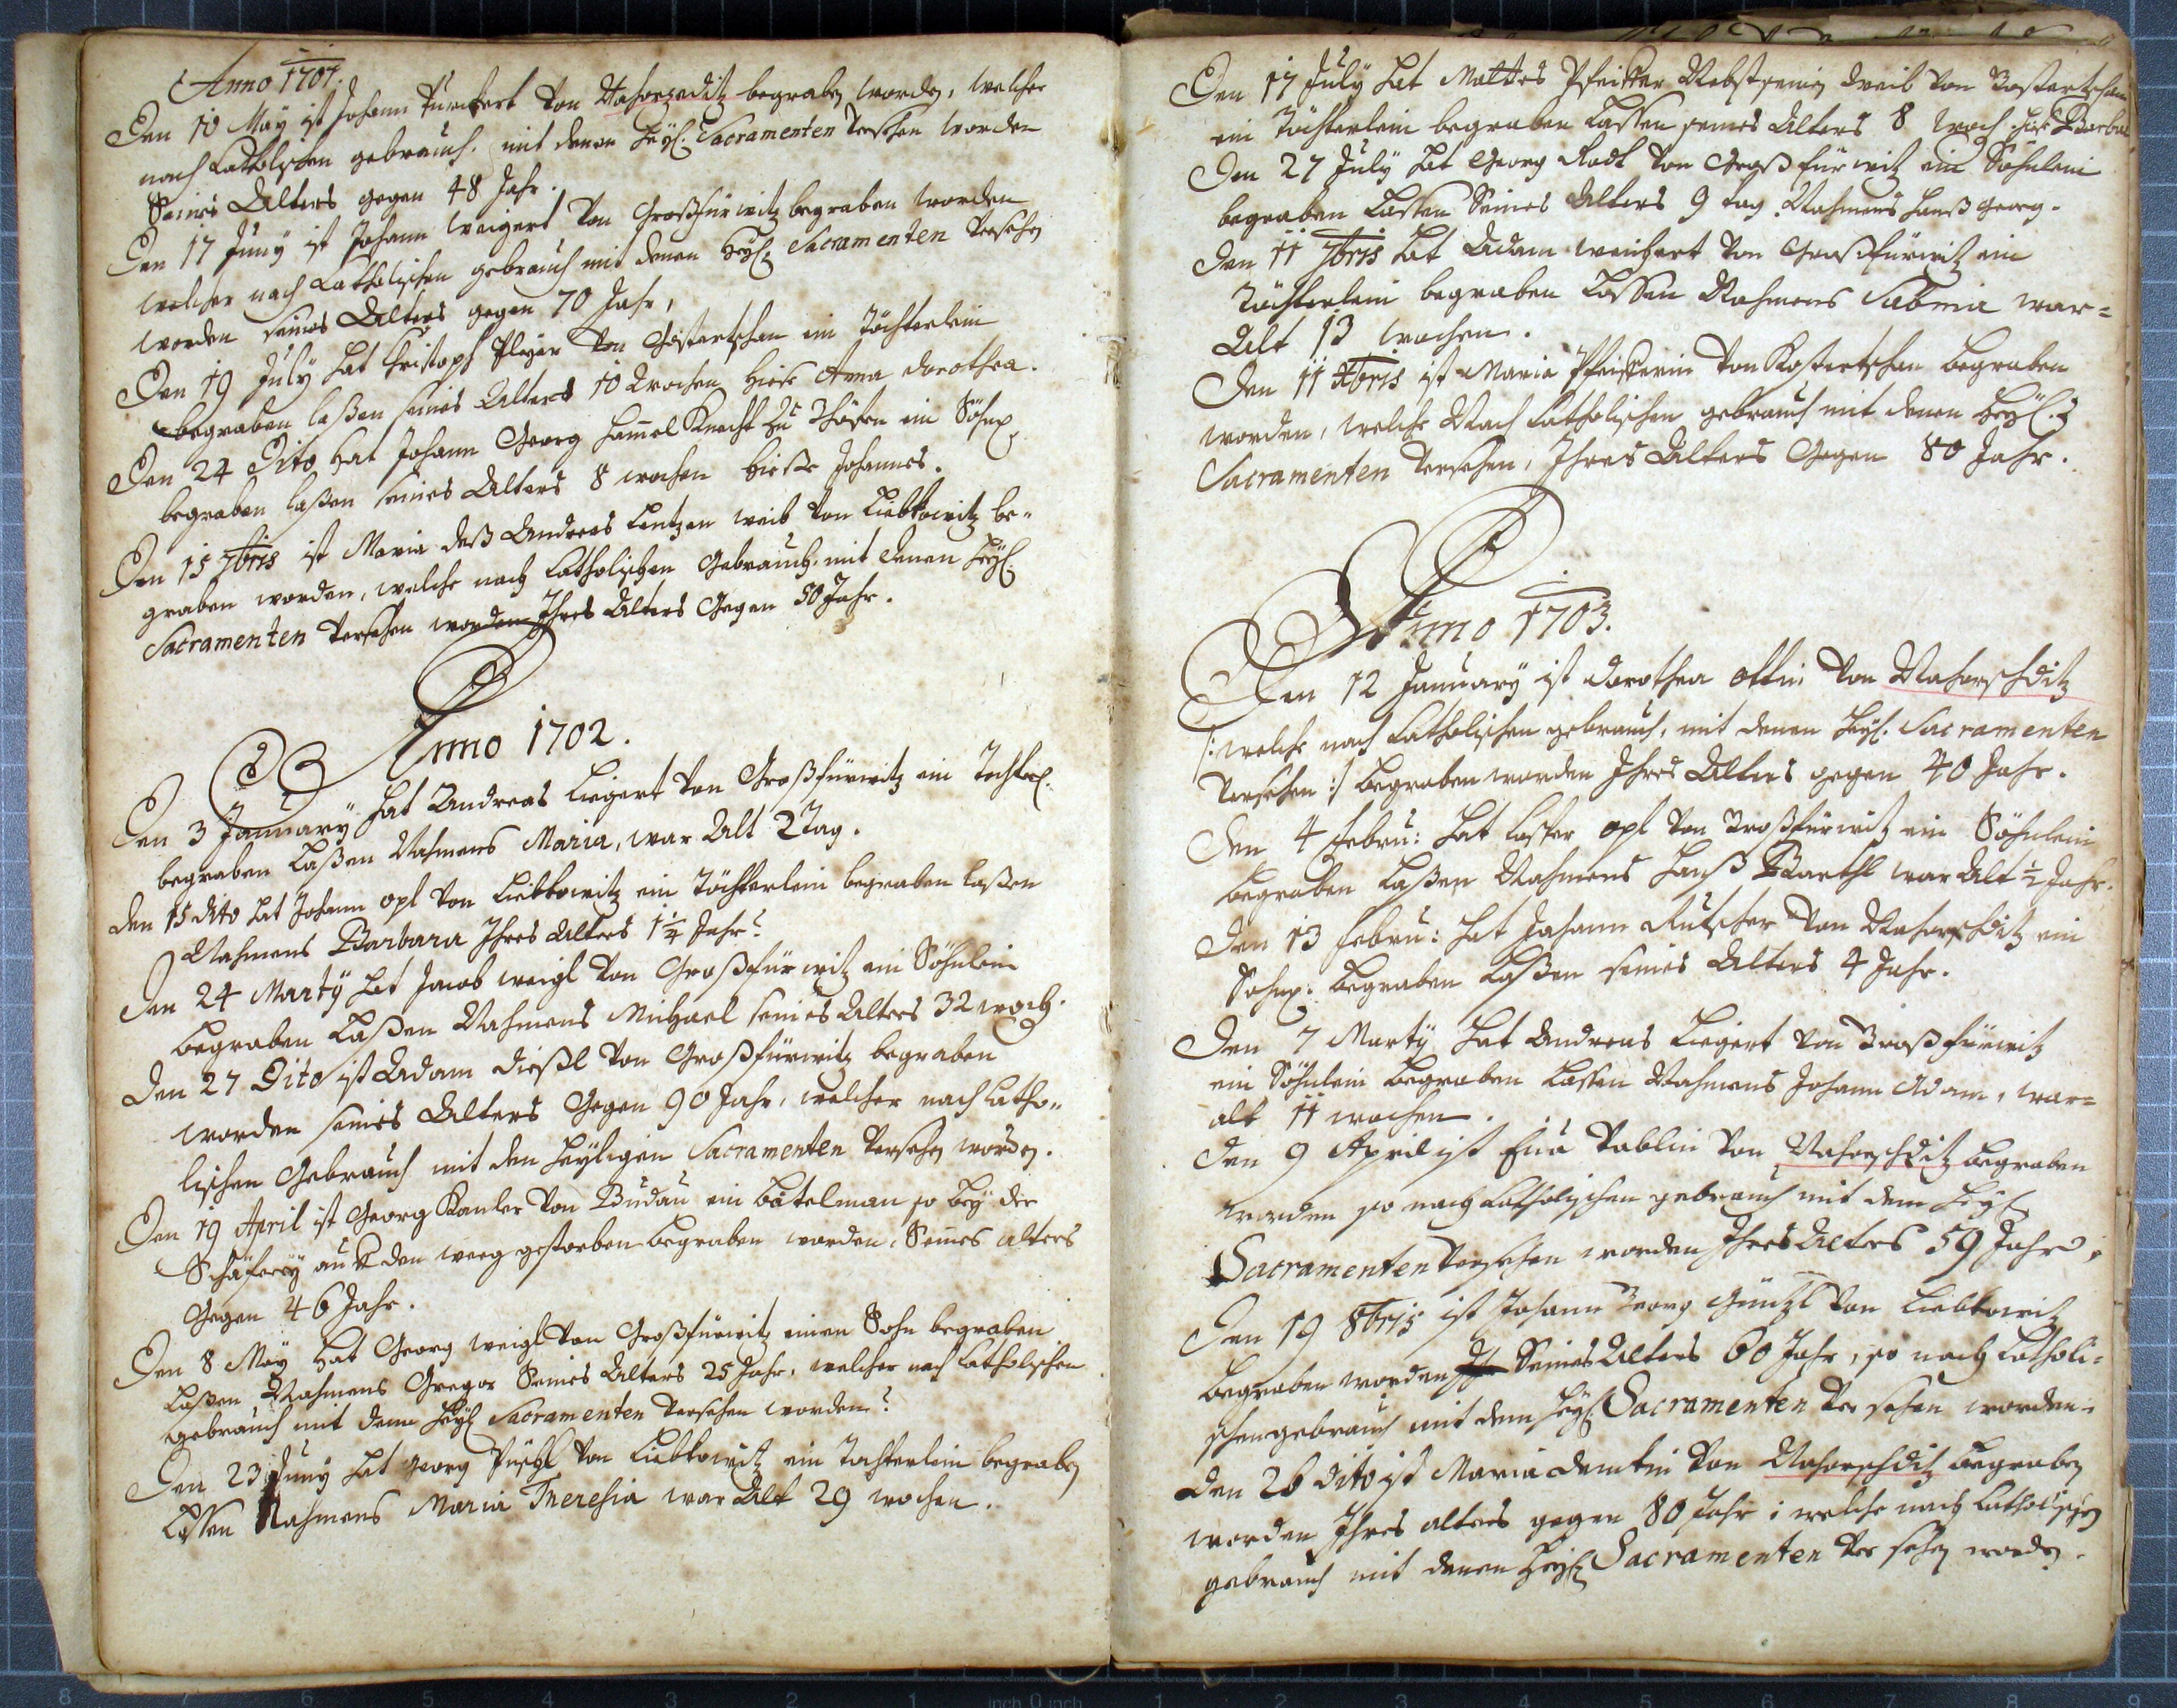 Anno 1701.
Den 10 May ist Johann Turckert von Nahorzeditz begraben worden, welcher
nach Catholischen gebrauch. mit denen Heyl. Sacramenten versehen worden
Seines Alters gegen 48 Jahr.
Den 17 Juny ist Johann Weigert von Großfürwitz begraben worden
welcher nach Catholischen gebrauch mit denen Heyl. Sacramenten versehen
worden seines Alters gegen 70 Jahr,
Den 19 July hat Christoph Player von Gosterschan ein Töchterlein
begraben laßen seines Alters 10 Wochen hieße Anna Dorothea.
Den 24 Dito hat Johann Georg Hamel Knecht zu ein Söhnl.
begraben laßen seines Alters 8 wochen hieße Johannes.
Den 15 7bris ist Maria deß Andreas Lentzen weib von Liebkowitz be-
graben worden, welche nach Catholischen Gebrauch. mit denen Heyl.
Sacramenten versehen worden Ihres Alters Gegen 50 Jahr.
Anno 1702.
Den 3 January hat Andreas Liegert von Großfürwitz ein Töchterl.
begraben Laßen Nahmens Maria, war Alt 2 Tag.
Den 15 dito hat Johann opl von Liebkowitz ein Töchterlein begraben laßen
Nahmens Barbara Ihres Alters 1¼ Jahr.
Den 24 Marty hat Jacob weigl von Großfürwitz ein Söhnlein
begraben Laßen Nahmens Michael seines Alters 32 woch.
Den 27 Dito ist Adam Dießl von Großfürwitz begraben
worden seines Alters Gegen 90 Jahr, welcher nach Catho-
lischen Gebrauch mit den Heyligen Sacramenten versehen worden.
Den 19 April ist Georg Kanler von Budau ein Bätelman so bey der
Schäferey auf den weeg gestorben begraben worden, Seines alters
Gegen 46 Jahr.
Den 8 May hat Georg weigl von Großfürwitz einen Sohn begraben
Laßen Nahmens Gregor Seines Alters 25 Jahr, welcher nach Catholischen
gebrauch mit denen Heyl Sacramenten versehen worden.
Den 23 Juny hat georg Püschl von Liebkowitz ein Tochterlein begraben
Lassen Nahmens Maria Theresia war Alt 29 wochen.
Den 17 July hat Mattes Pfeiffer Nebst seinen Weib von Gosterschan
ein Töchterlein begraben Lassen seines Alters 8 woch. hieß Barbar
Den 27 July hat Georg Radl von Großfürwitz ein Söhnlein
begraben Lassen Seines Alters 9 tag. Nahmens Hanß georg.
Den 11 7bris hat Adam weickert von Großfürwitz ein
Töchterlein begraben Lassen Nahmens Sabina war-
Alt 13 wochen.
Den 11 Xbris ist Maria Pfeifferin von Kosterschan begraben
worden, welche Nach Catholischen gebrauch mit denen Heyl.
Sacramenten versehen, Ihres Alters Gegen 80 Jahr.
Anno 1703.
Den 12 January ist Dorothea ottin von Nahorschditz
/: welche nach Catholischen gebrauch, mit denen Heyl. Sacramenten
versehen :/ begraben worden Ihres Alters gegen 40 Jahr.
Den 4 Febru: hat Casper opl von Großfürwitz ein Söhnlein
begraben Laßen Nahmens Hanß Barthl war Alt ½ Jahr.
Den 13 Febru: hat Johann Kutscher von Nahorschditz ein
Sohnl: begraben Laßen seines Alters 4 Jahr.
Den 7 Marty hat Andreas Liegert von Großfürwitz
ein Söhnlein begraben Lassen Nahmens Johann Adam, war-
alt 11 wochen.
Den 9 April ist Eva Pablin von Nahorschditz begraben
worden so nach Catholischen gebrauch mit dem Heyl
Sacramenten versehen worden Ihres Alters 59 Jahr,
Den 19 8bris ist Johann Georg Güntzl von Liebkowitz
begraben worden Seines Alters 60 Jahr, so nach Catholi-
schen gebrauch mit dem Heyl Sacramenten versehen worden.
Den 26 Dito ist Maria Demlin von Nahorschditz begraben
worden Ihres alters gegen 80 Jahr: welche nach Catholischen
gebrauch mit denen Heyl Sacramenten versehen worden.